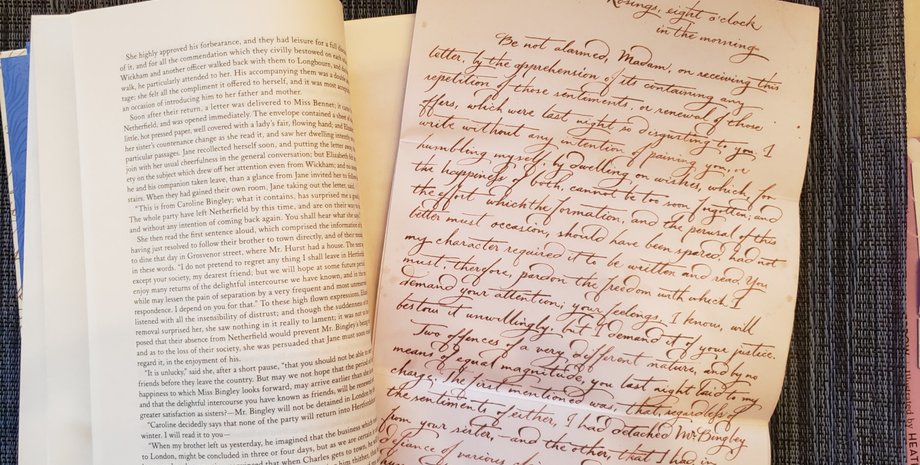 She highly approved his forbearance, and they had leisure for a full
of it, and for all the commendation which they civilly bestowed on each
Wickham and another officer walked back with them to Longbourn, and
walk, he particularly attended to her. His accompanying them was a double
tage; she felt all the compliment it offered to herself, and it was most
an occasion of introducing him to her father and mother.
Soon after their return, a letter was delivered to Miss Bennet; it came
Netherfield, and was opened immediately. The envelope contained a sheet of
little, hot pressed paper, well covered with a lady's fair, flowing hand; and
her sister's countenance change as she read it, and saw her dwelling intently
particular passages. Jane recollected herself soon, and putting the letter away,
join with her usual cheerfulness in the general conversation; but Elizabeth felt
ety on the subject which drew off her attention even from Wickham; and no
he and his companion taken leave, than a glance from Jane invited her to follow
stairs. When they had gained their own room, Jane taking out the letter, said,
"This is from Caroline Bingley; what it contains, has surprised me a good
The whole party have left Netherfield by this time, and are on their way
and without any intention of coming back again. You shall hear what she
She then read the first sentence aloud, which comprised the information of
having just resolved to follow their brother to town directly, and of their
to dine that day in Grosvenor street, where Mr. Hurst had a house. The next
in these words. "I do not pretend to regret any thing I shall leave in
except your society, my dearest friend; but we will hope at some future
enjoy many returns of the delightful intercourse we have known, and in the
while may lessen the pain of separation by a very frequent and most
respondence. I depend on you for that." To these high flown expressions,
listened with all the insensibility of distrust; and though the suddenness of
removal surprised her, she saw nothing in it really to lament; it was not to
posed that their absence from Netherfield would prevent Mr. Bingley's being
and as to the loss of their society, she was persuaded that Jane must soon
regard it, in the enjoyment of his.
"It is unlucky," said she, after a short pause, "that you should not be able to
friends before they leave the country. But may we not hope that the period
happiness to which Miss Bingley looks forward, may arrive earlier than she is
and that the delightful intercourse you have known as friends, will be renewed
greater satisfaction as sisters?—Mr. Bingley will not be detained in London by
"Caroline decidedly says that none of the party will return into Hertfordshire
winter. I will read it to you—
"When my brother left us yesterday, he imagined that the business which
to London, might be concluded in three or four days, but as we are certain it
that when Charles gets to town, he
him thither, that
Rosings, eight o'clock
in the morning
Be not alarmed, Madam, on receiving this
letter, by the apprehension of its containing any
repetition of those sentiments, or renewal of those
offers, which were last night so disgusting to you. I
write without any intention of paining you, or
humbling myself, by dwelling on wishes, which, for
the happiness of both, cannot be too soon forgotten; and
the effort which the formation, and the perusal of this
letter must occasion, should have been spared, had not
my character required it to be written and read. You
must, therefore, pardon the freedom with which I
demand your attention; your feelings, I know, will
bestow it unwillingly, but I demand it of your justice.
Two offences of a very different nature, and by no
means of equal magnitude, you last night laid to my
charge. The first mentioned was, that, regardless of
the sentiments of either, I had detached Mr Bingley
from your sister,— and the other, that I had, in
defiance of various
by HEATH